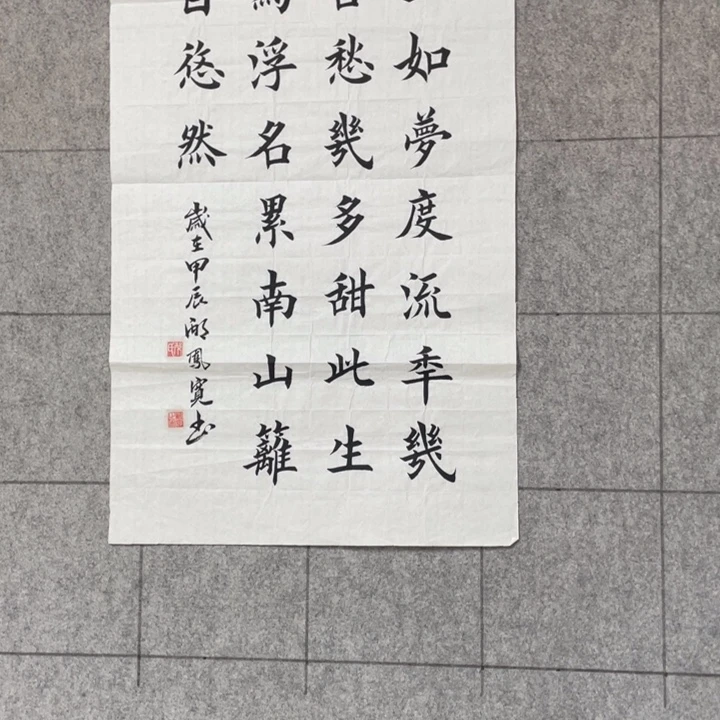 如夢度流秊幾
愁幾多甜此生
浮名累南山籬
悠然
歲在甲辰鳳寬书